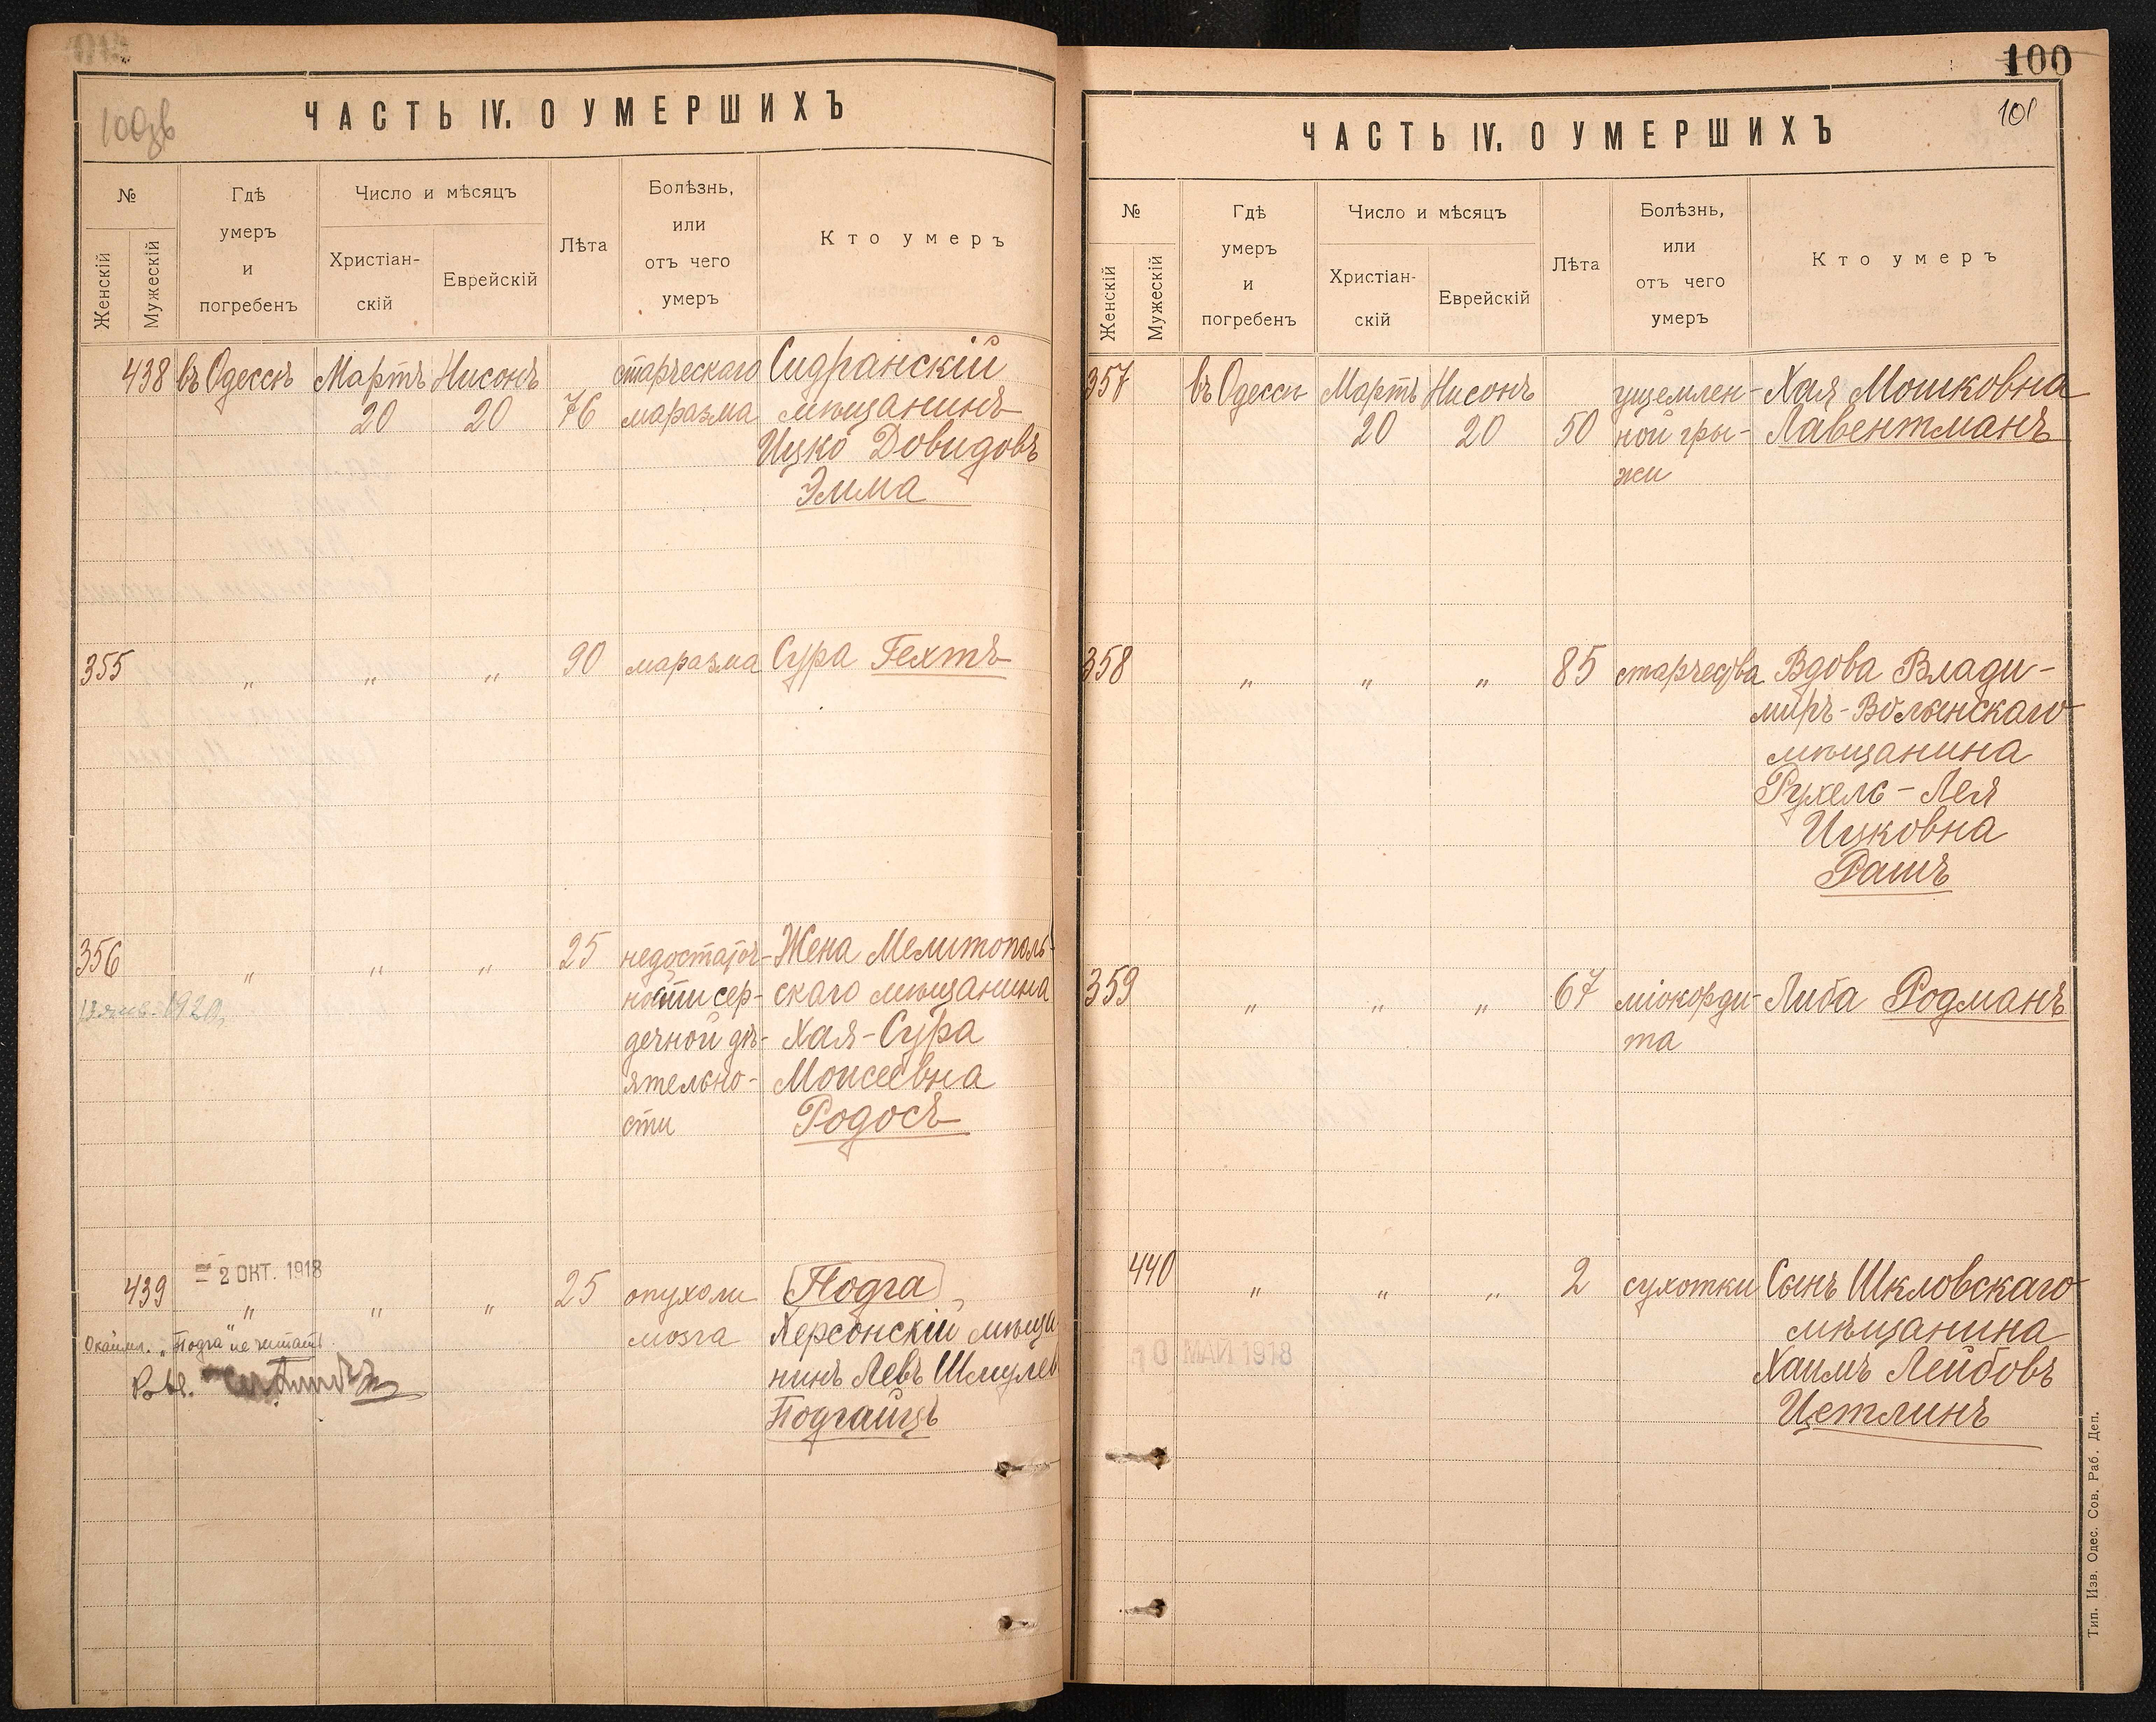 100
100зв
ЧАСТЬ IV. О УМЕРШИХЪ
№
Женскій
Мужескій
Гдѣ
умеръ
и
погребенъ
Число и мѣсяцъ
Христіан-
скій
Еврейскій
Лѣта
Болѣзнь,
или
отъ чего
умеръ
Кто умеръ
438 въ Одессѣ Мартъ Нисонъ старческаго Сидранскій
20 20 76 маразма мѣщанинъ
Ицко Довидовъ
Эмма
355 „ „ „ 90 маразма Сура Гехтъ
356 „ „ „ 25 недостаточ- Жена Мелитополь-
ности сер- скаго мѣщанина
1920
дечной дѣ- Хая-Сура
ятельно- Моисеевна
сти Родосъ
= 2 ОКТ. 1918
439 „ „ „ 25 опухоли Подга
мозга Херсонскій мѣща
Окаймл. „Подга" не читать.
нинъ Левъ Шмулев
Подгаицъ
101
ЧАСТЬ IV. О УМЕРШИХЪ
№
Женскій
Мужескій
Гдѣ
умеръ
и
погребенъ
Число и мѣсяцъ
Христіан-
скій
Еврейскій
Лѣта
Болѣзнь,
или
отъ чего
умеръ
Кто умеръ
357 въ Одессѣ Мартъ Нисонъ ущемлен- Хая Мошковна
20 20 50 ной гры- Лавентманъ
жи
358 „ „ „ 85 старчества Вдова Влади-
миръ-Волынскаго
мѣщанина
Рухель-Лея
Ицковна
Рашъ
359 „ „ „ 67 міокорди- Либа Родманъ
та
440 „ „ „ 2 сухотки Сынъ Шкловскаго
мѣщанина
10 МАЙ 1918
Хаимъ Лейбовъ
Цетлинъ
Тип. Изв. Одес. Сов. Раб. Деп.